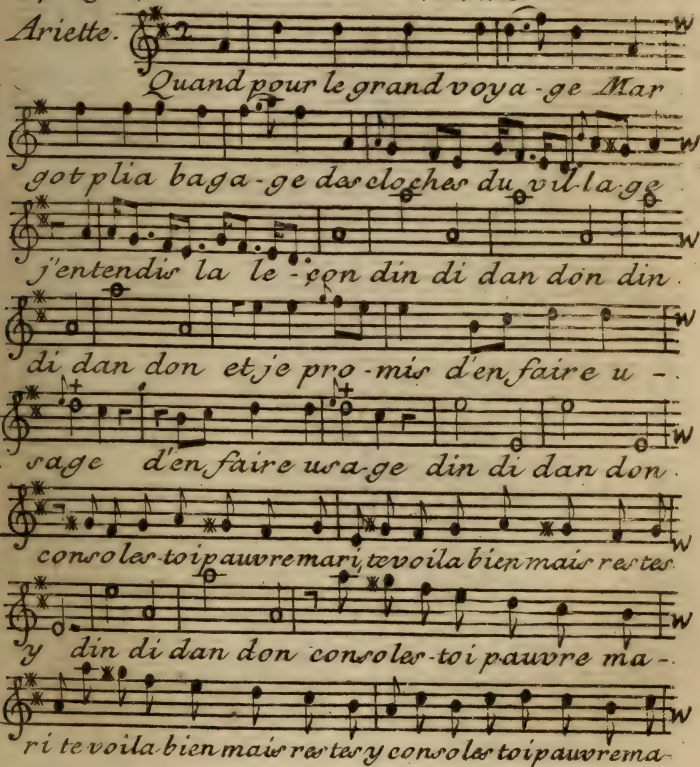 Ariette.
Quand pour le grand voya-ge Mar
got plia baga-ge des cloches du vil-la-ge
j'entendis la le-çon din di dan don din
di dan don et je pro-mis d'en faire u-
sage d'en faire usa-ge din di dan don
consoles-toi pauvre mari, te voila bien mais restes
y din di dan don consoles-toi pauvre ma-
ri te voila bien mais restes y consoles toi pauvre ma-